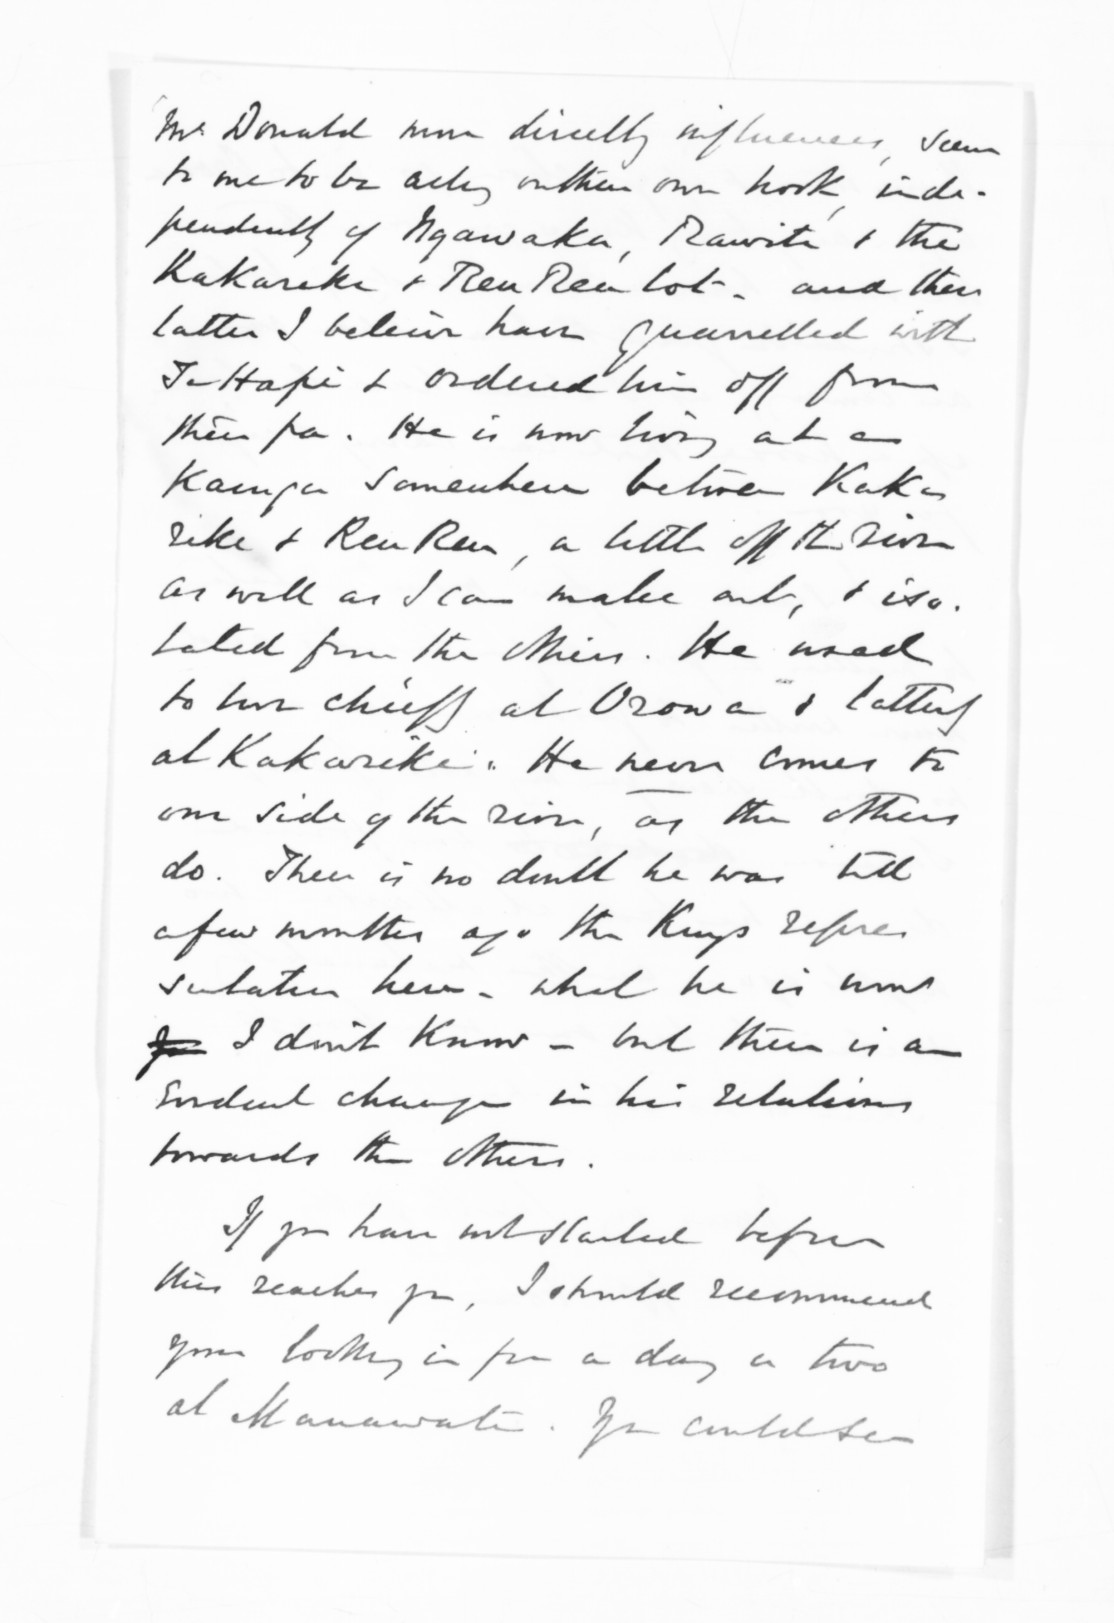 McDonald more directly influences, seem
to me to be acting on their own hook, inde-
pendently of Ngawaka, Rawiti & the
Kakarike & Reu Reu lot - and these
latter I believe have quarrelled with
Te Hapi & ordered him off from
their pa. He is now living at a
Kainga somewhere between Kaka
rike & Reu Reu, a little off the river
as well as I can make out, & iso-
lated from the others. He used
to live chiefly at Orowa & latterly
at Kakarike. He never comes to
our side of the river, as the others
do. There is no doubt he was till
a few months ago the Kings repre
sentative here - what he is now
I don't know - but there is an
evident change in his relations
towards the others.
If you have not started before
this reaches you, I should recommend
your looking in for a day or two
at Manawatu. You could see